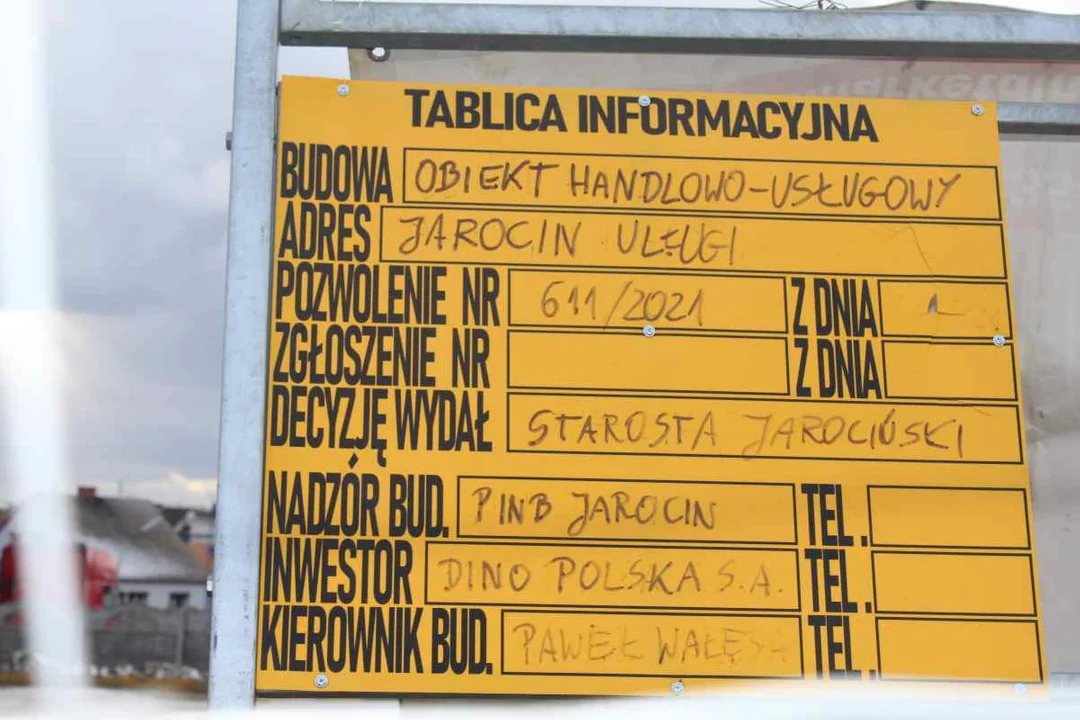 TABLICA INFORMACYJNA
BUDOWA OBIEKT HANDLOWO-USŁUGOWY
ADRES JAROCIN UL.ŁUGI
POZWOLENIE NR 611/2021 Z DNIA
ZGŁOSZENIE NR Z DNIA
DECYZJĘ WYDAŁ STAROSTA JAROCIŃSKI
NADZÓR BUD. PINB JAROCIN TEL.
INWESTOR DINO POLSKA S.A. TEL.
KIEROWNIK BUD. PAWEŁ TEL.